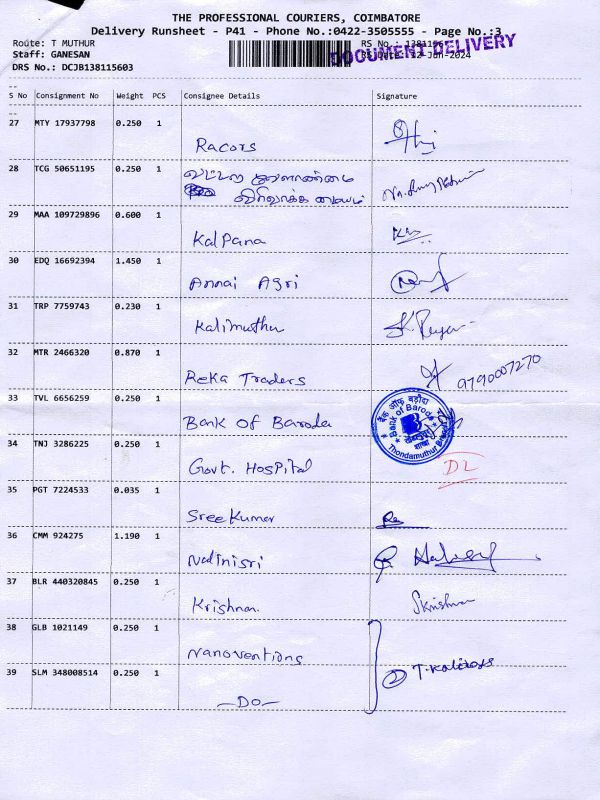 THE PROFESSIONAL COURIERS, COIMBATORE
Delivery Runsheet - P41 - Phone No.:0422-3505555 - Page No.:3
Route: T MUTHUR
Staff: GANESAN
DRS No.: DCJB138115603
RS No.:
RS Date: 12-Jan-2024
DOCUMENT DELIVERY
S No Consignment No Weight PCS Consignee Details Signature
27 MTY 17937798 0.250 1 Racors
28 TCG 50651195 0.250 1 வட்டார வேளாண்மை
விரிவாக்க மையம்
29 MAA 109729896 0.600 1 Kalpana
30 EDQ 16692394 1.450 1 Annai Agri
31 TRP 7759743 0.230 1 Kalimuthu
32 MTR 2466320 0.870 1 Reka Traders 9790007270
33 TVL 6656259 0.250 1 Bank of Baroda
बैंक ऑफ़ बड़ौदा
Bank of Baroda
शाखा
Thondamuthur
34 TNJ 3286225 0.250 1 Govt. Hospital DL
35 PGT 7224533 0.035 1 Sreekumar
36 CMM 924275 1.190 1 Nalinisri
37 BLR 440320845 0.250 1 Krishnan. Skrishnan
38 GLB 1021149 0.250 1 Nanoventions
39 SLM 348008514 0.250 1 —DO—